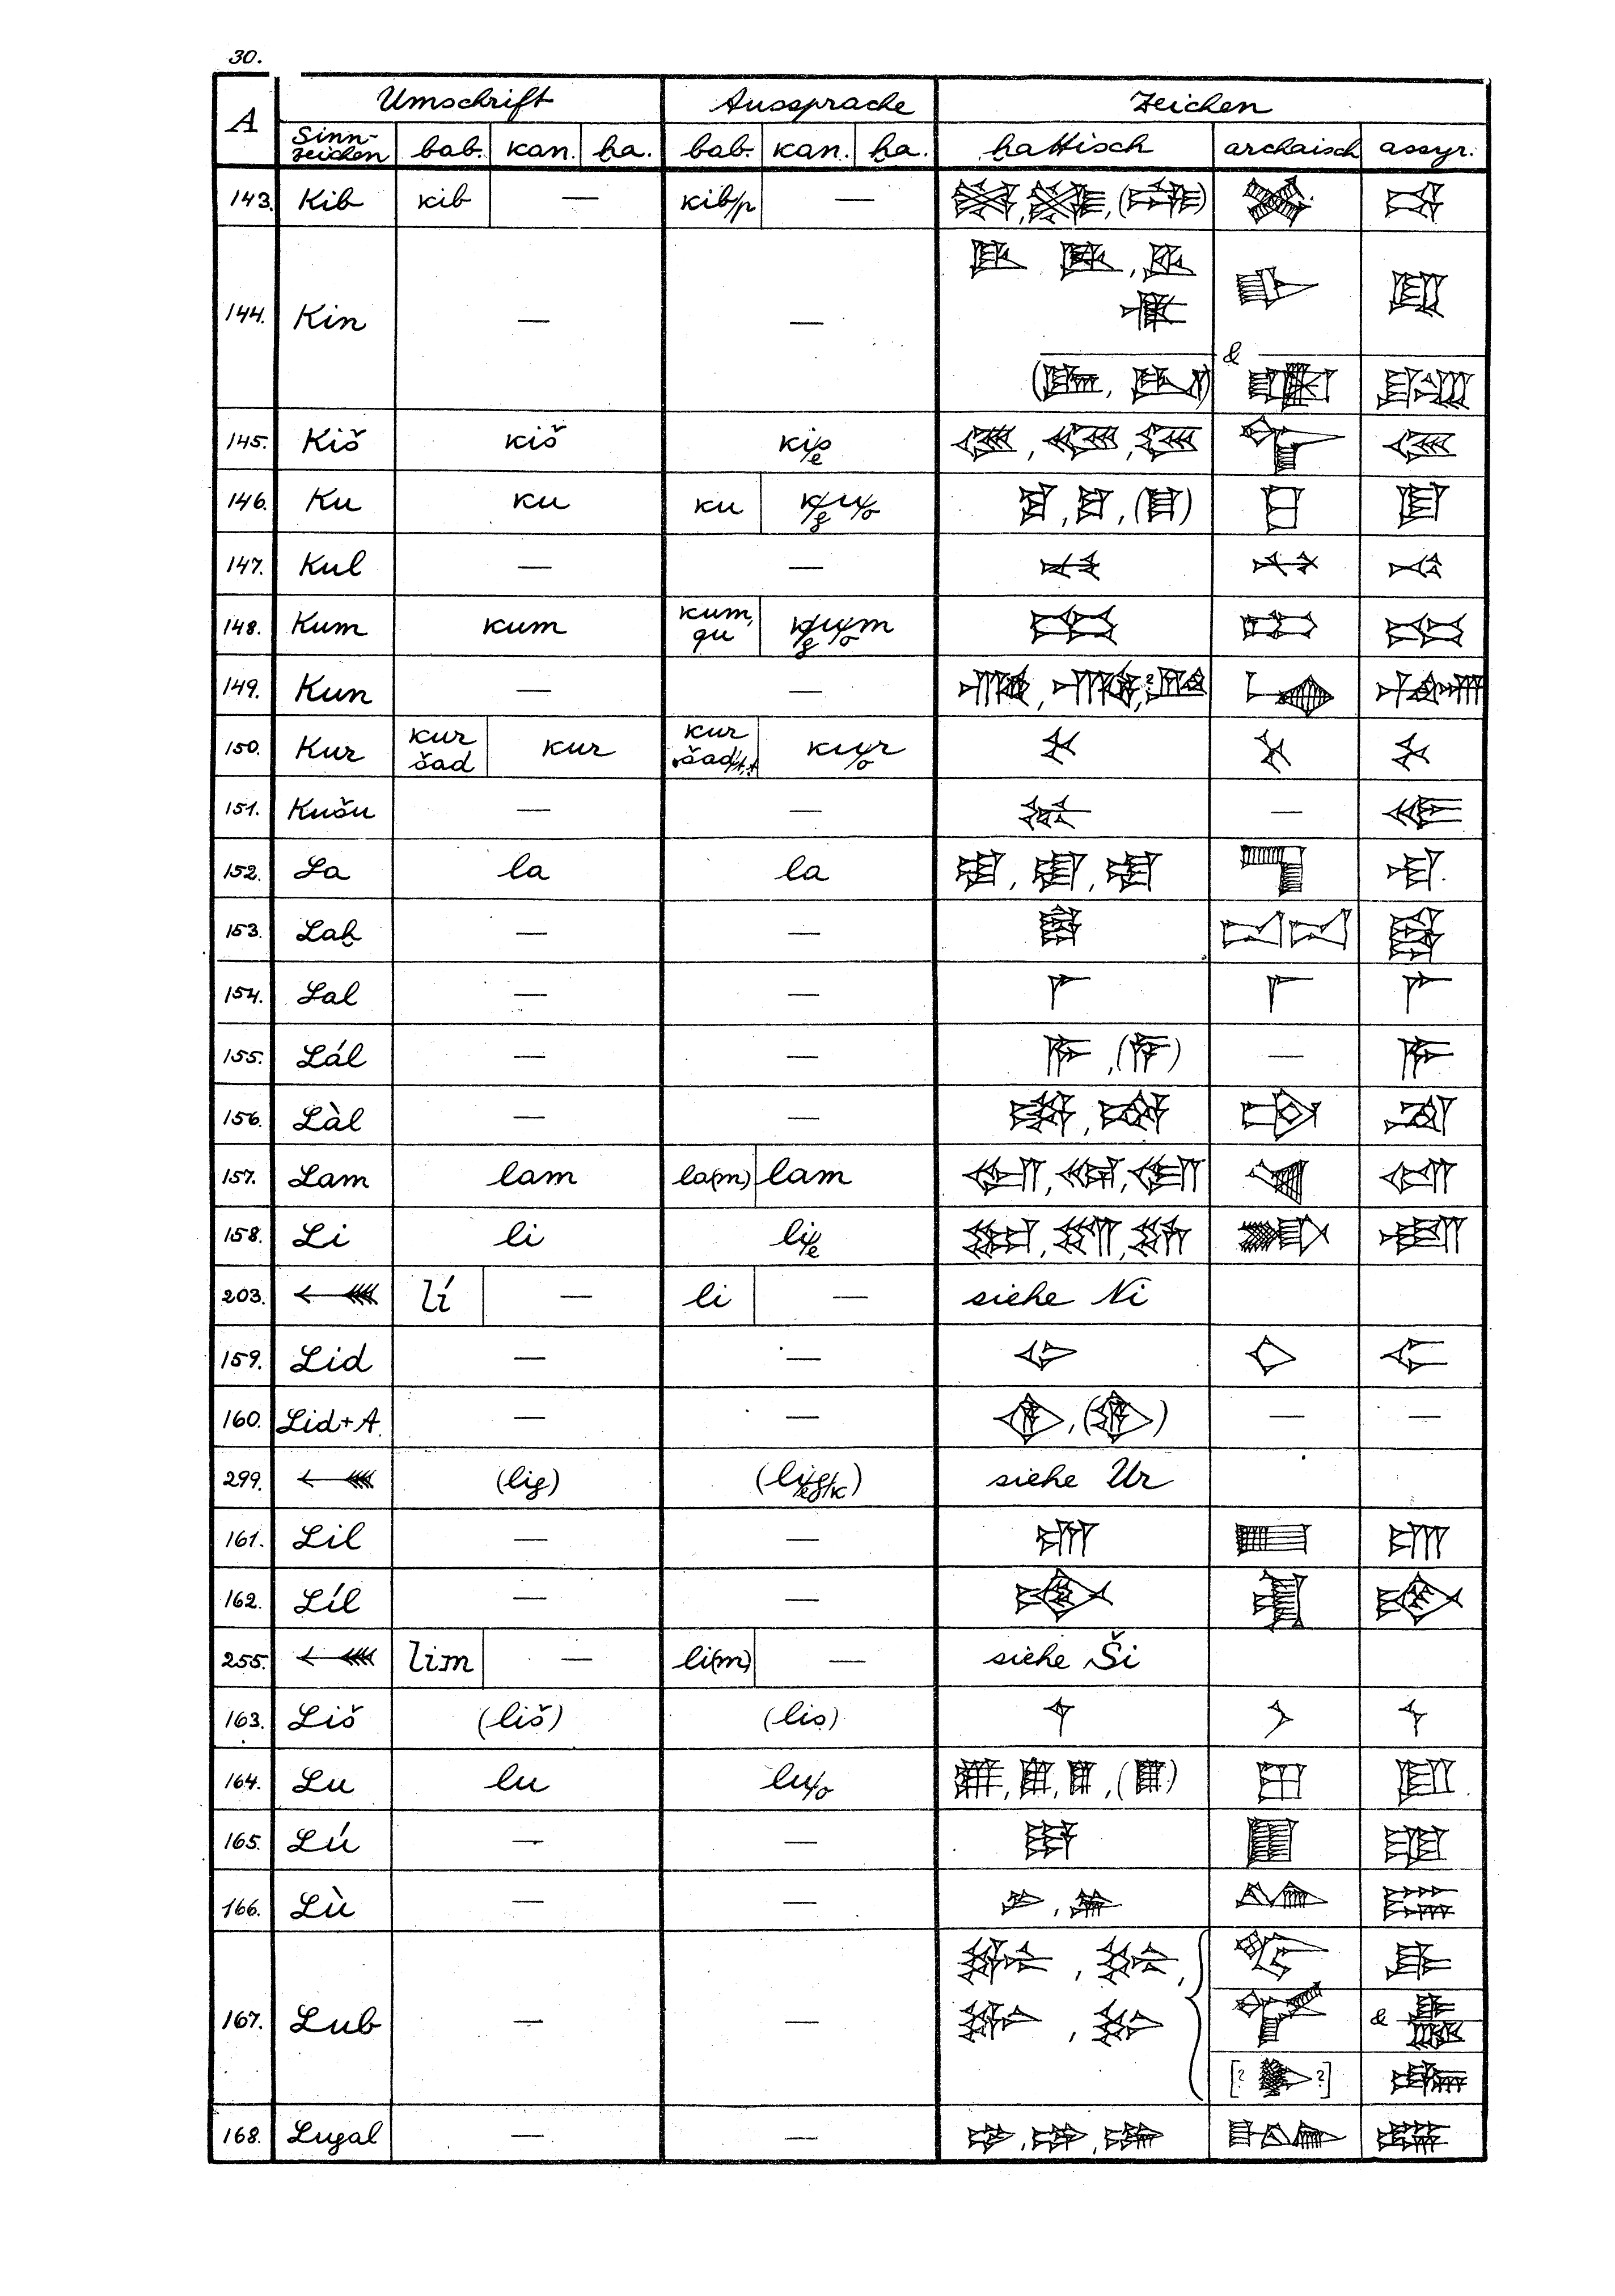 30.
A Umschrift Aussprache Zeichen
Sinn-
zeichen bab. kan. ha. bab. kan. ha. hattisch archaisch assyr.
143. Kib kib — kib/p —
144. Kin — —
&
145. Kiš kiš
146. Ku ku ku k/gu/o
147. Kul — —
148. Kum kum kum, qu k/gu/om
149. Kun — —
150. Kur kur šad kur kur ku/or
151. Kušu — — —
152. La la la
153. Laḫ — —
154. Lal — —
155. Lál — — —
156. Làl — —
157. Lam lam la(m) lam
158. Li li li/e
203. lí — li — siehe Ni
159. Lid — —
160. Lid+A. — — — —
299. (lig) siehe Ur
161. Lil — —
162. Líl — —
255. lim — li(m) — siehe Ši
163. Liš (liš) (lis)
164. Lu lu lu/o
165. Lú — —
166. Lù — —
167. Lub — — &
[? ?]
168. Lugal — —